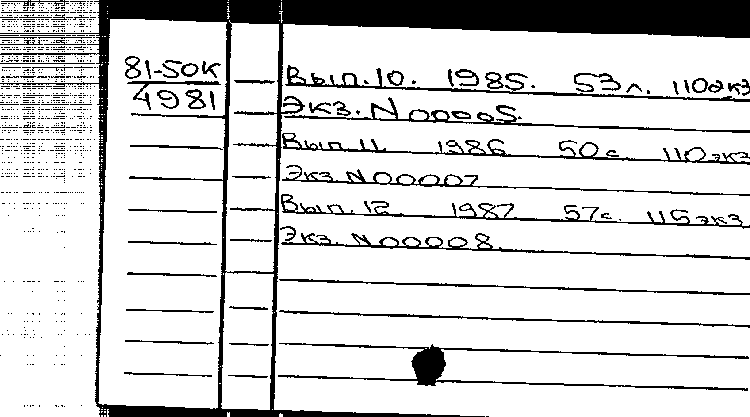 81-50К
4981
Вып. 10. 1985. 53 л. 110 экз
Экз. N 00005.
Вып. 11 1986 50 с. 110 экз
Экз. N 00007
Вып. 12. 1987 57 с. 115 экз
Экз. N 00008.